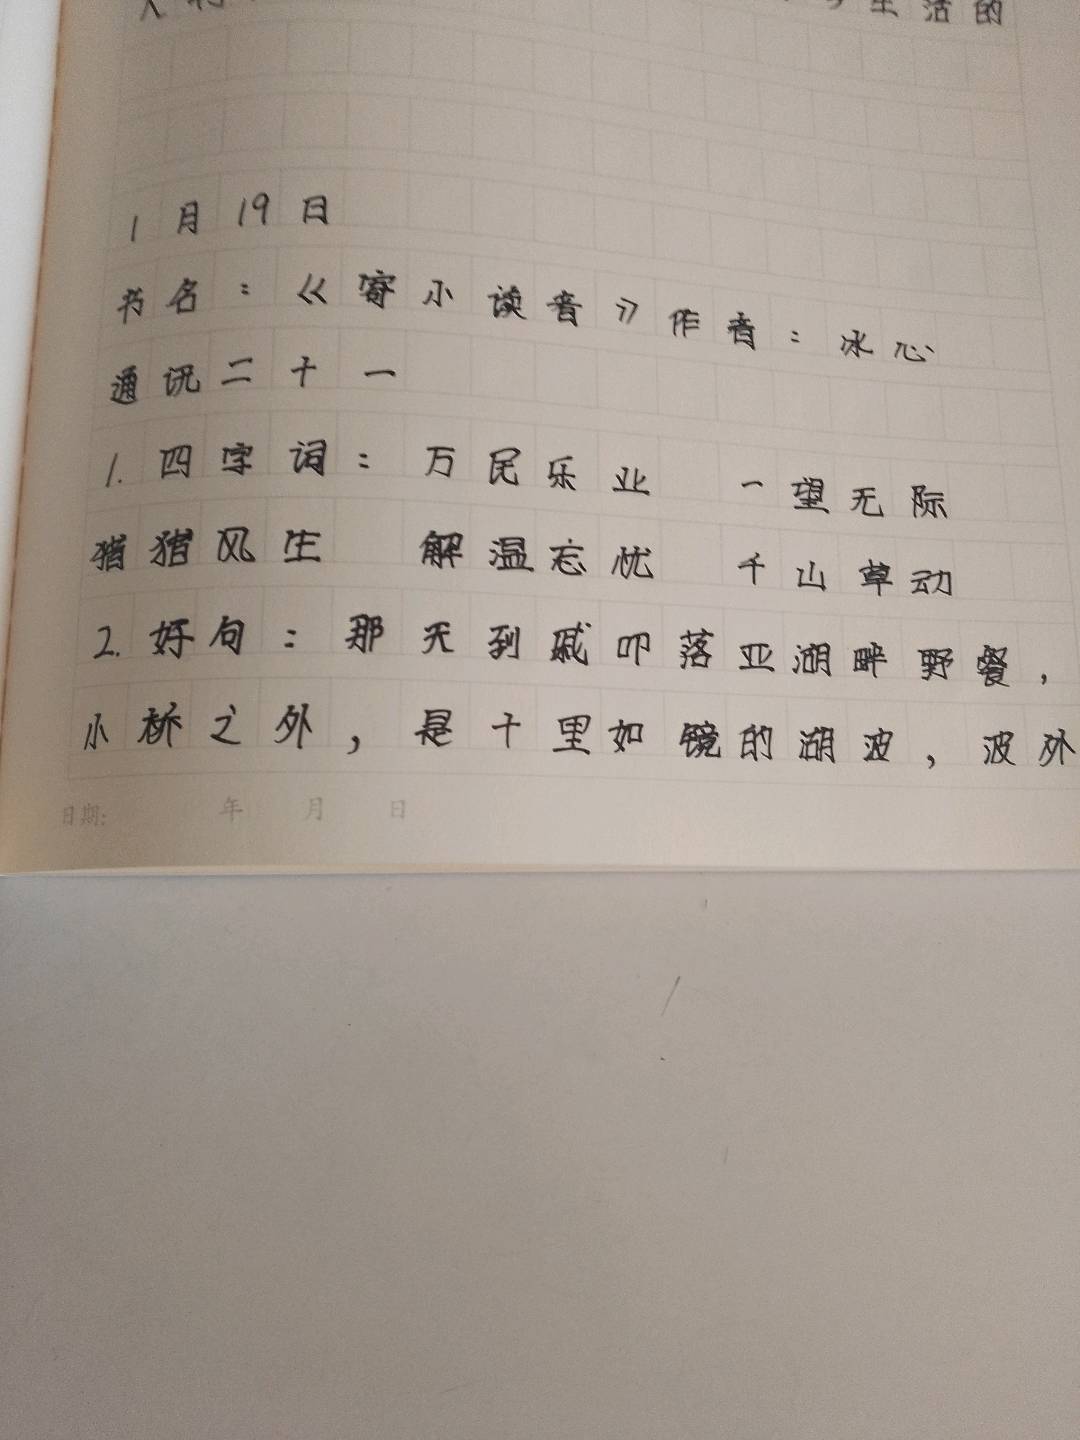 生活的
1月19日
书名：《寄小读者》作者：冰心
通讯二十一
1.四字词：万民乐业 一望无际
猎猎风生 解温忘忧 千山草动
2.好句：那天到戚叩落亚湖畔野餐，
小桥之外，是十里如镜的湖波，波外
日期： 年 月 日